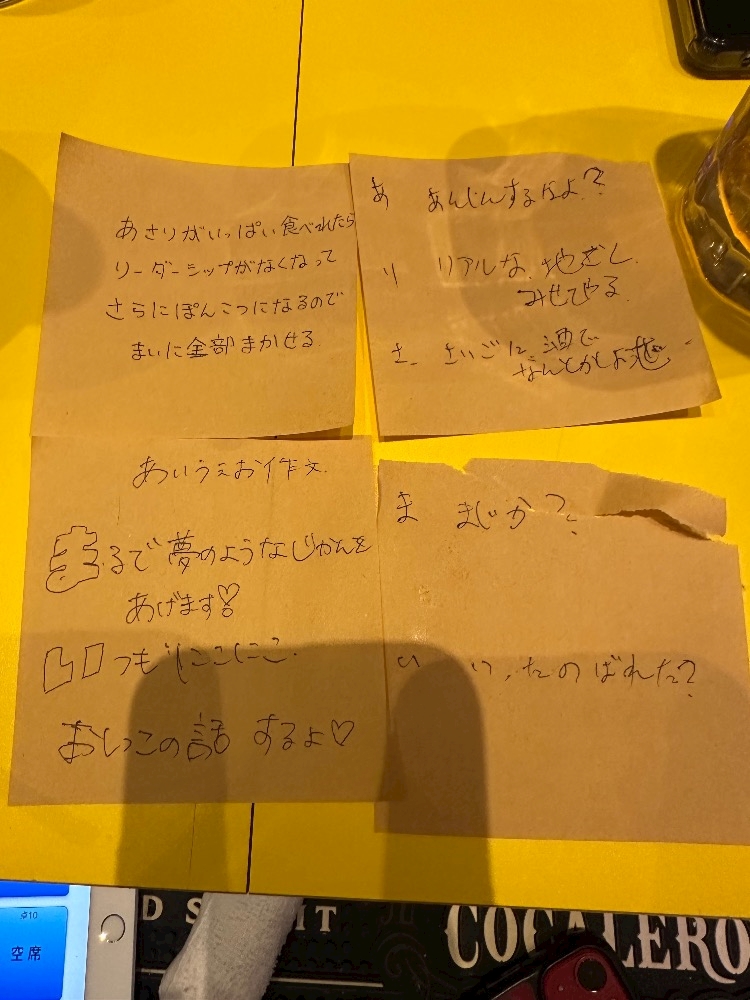 あさりがいっぱい食べれたら
リーダーシップがなくなって
さらにぽんこつになるので
まいに全部まかせる
あ あんしんするなよ?
り リアルな 地ごし
みせてやる
さ さいごに 酒で
なんとかしよ
あいうえお作文
まるで夢のようなじかんを
あげます♡
いつもにこにこ
おしっこの話 するよ♡
ま まじか?
い いったのばれた?
卓10
空席
COCALERO